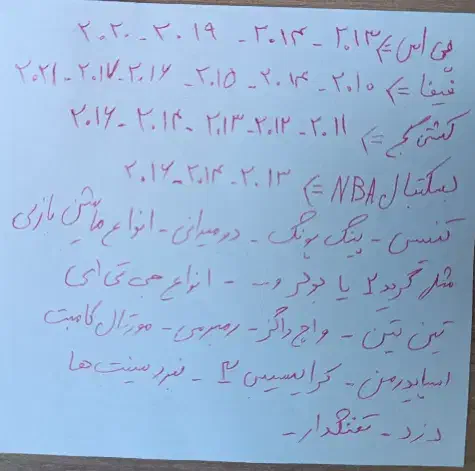 پی اس => ۲۰۱۳ - ۲۰۱۴ - ۲۰۱۹ - ۲۰۲۰
فیفا => ۲۰۱۰ - ۲۰۱۴ - ۲۰۱۵ - ۲۰۱۶ - ۲۰۱۷ - ۲۰۲۱
کشتی کج => ۲۰۱۱ - ۲۰۱۲ - ۲۰۱۳ - ۲۰۱۴ - ۲۰۱۶
بسکتبال NBA => ۲۰۱۳ - ۲۰۱۴ - ۲۰۱۶
تنیس - پینگ پونگ - دومیدانی - انواع ماشین بازی
مثل گرید ۲ یا و - - انواع جی تی ای
تین تین - واچ داگز - رمبو - مورتال کامبت
اسپایدرمن - کرایسیس ۲ - نبرد سینت ها
دزد - تفنگدار -